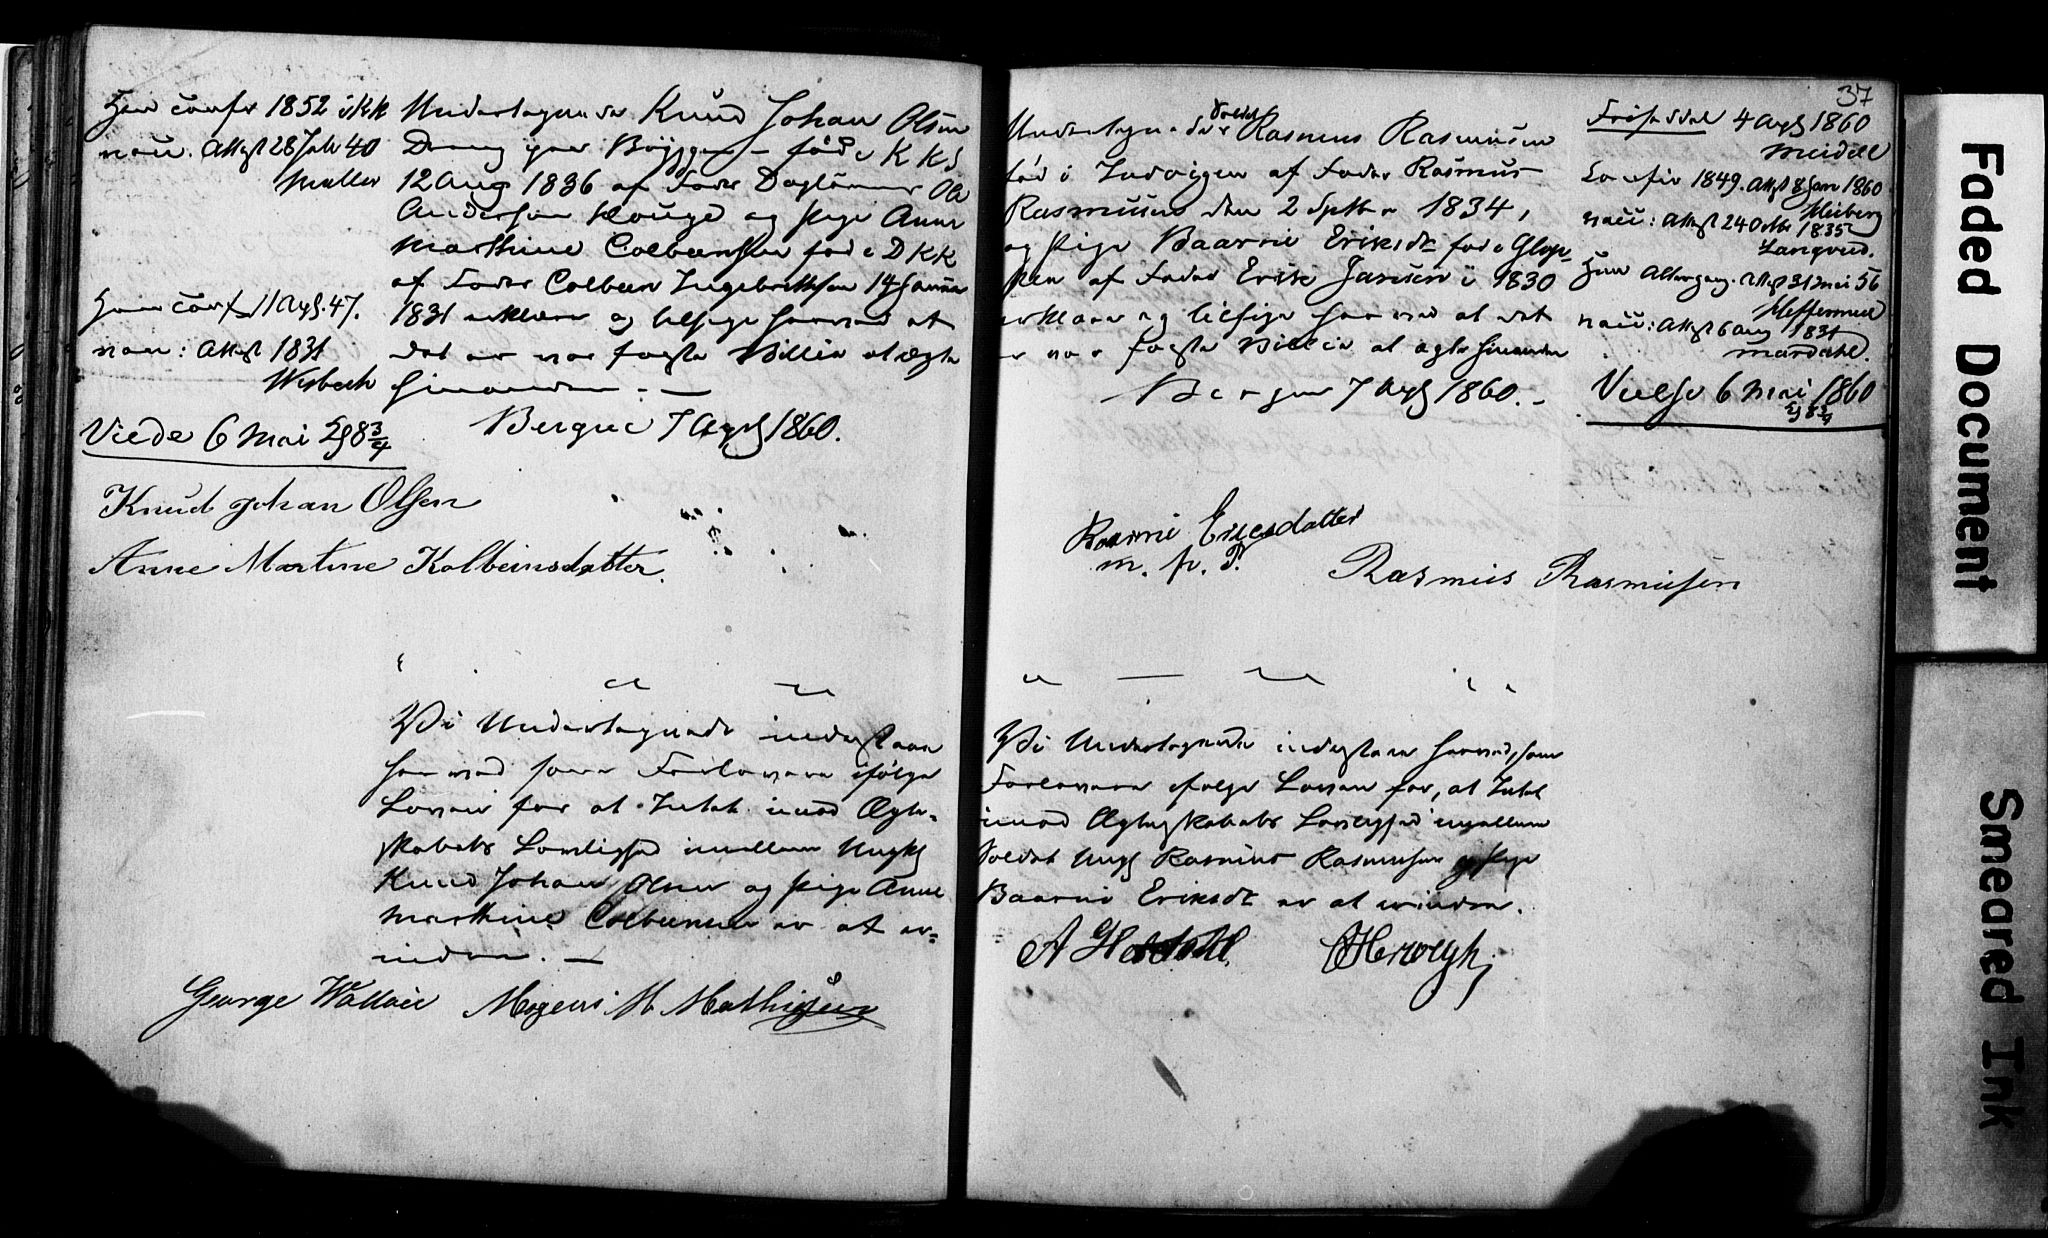 Han confr 1852 i KK
vacc. Attest 28 Juli 40
Møller
Hun confr 11 Apl. 47.
vacc: Attest 1831
Wisbech
Viede 6 Mai Lg 8 3/4
Undertegnede Knud Johan Olsen
Dreng paa Bryggen - fød i KKS
12 Aug 1836 af Fader Dagleier Ole
Anderson Houge og Pige Anne
Marthine Colbeensen fød i DKK
af Fader Colbeen Ingebrethsen 14 Januar
1831 erklære og tilsige herved at
det er vor faste Villie at ægte
hinanden. —
Bergen 7 Apl 1860.
Knud Johan Olsen
Anne Martine Kolbeinsdatter.
Vi Undertegnede indestaae
herved som Forlovere ifølge
Loven for at Intet imod Ægte-
skabets Lovlighed imellem Ungk
Knud Johan Olsen og Pige Anne
Marthine Colbeensen er at er-
indre. —
George Wallace Mogens M Mathiesen
37
Undertegnede Soldat Rasmus Rasmusen
fød i Indvigen af Fader Rasmus
Rasmusen den 2 Septbr 1834,
og Pige Baarnie Eriksdt fød i Glop-
pen af Fader Erik Jansen i 1830
erklære og tilsige herved at det
er vor faste Villie at ægte hinanden
Bergen 7 Apl 1860. -
Friseddel 4 Apl 1860
Meidell
Confir 1849. Attest 8 Jan 1860
Heiberg
vacc: Attest 24 Octbr 1835
Landqved.
Hun Altergang. Attest 31 Mai 56
vacc: Attest 6 Aug 1831
Mardahl.
Vielse 6 Mai 1860
Lg 8 3/4
Baarnie Ericsdatter
m. p. P.
Rasmus Rasmusen
Vi Undertegnede indestaae herved, som
Forlovere ifølge Loven for, at Intet
imod Ægteskabets Lovlighed imellem
Soldat Ungk Rasmus Rasmusen og Pige
Baarnie Eriksdt er at erindre.
A Herwegh
Faded Document
Smeared Ink